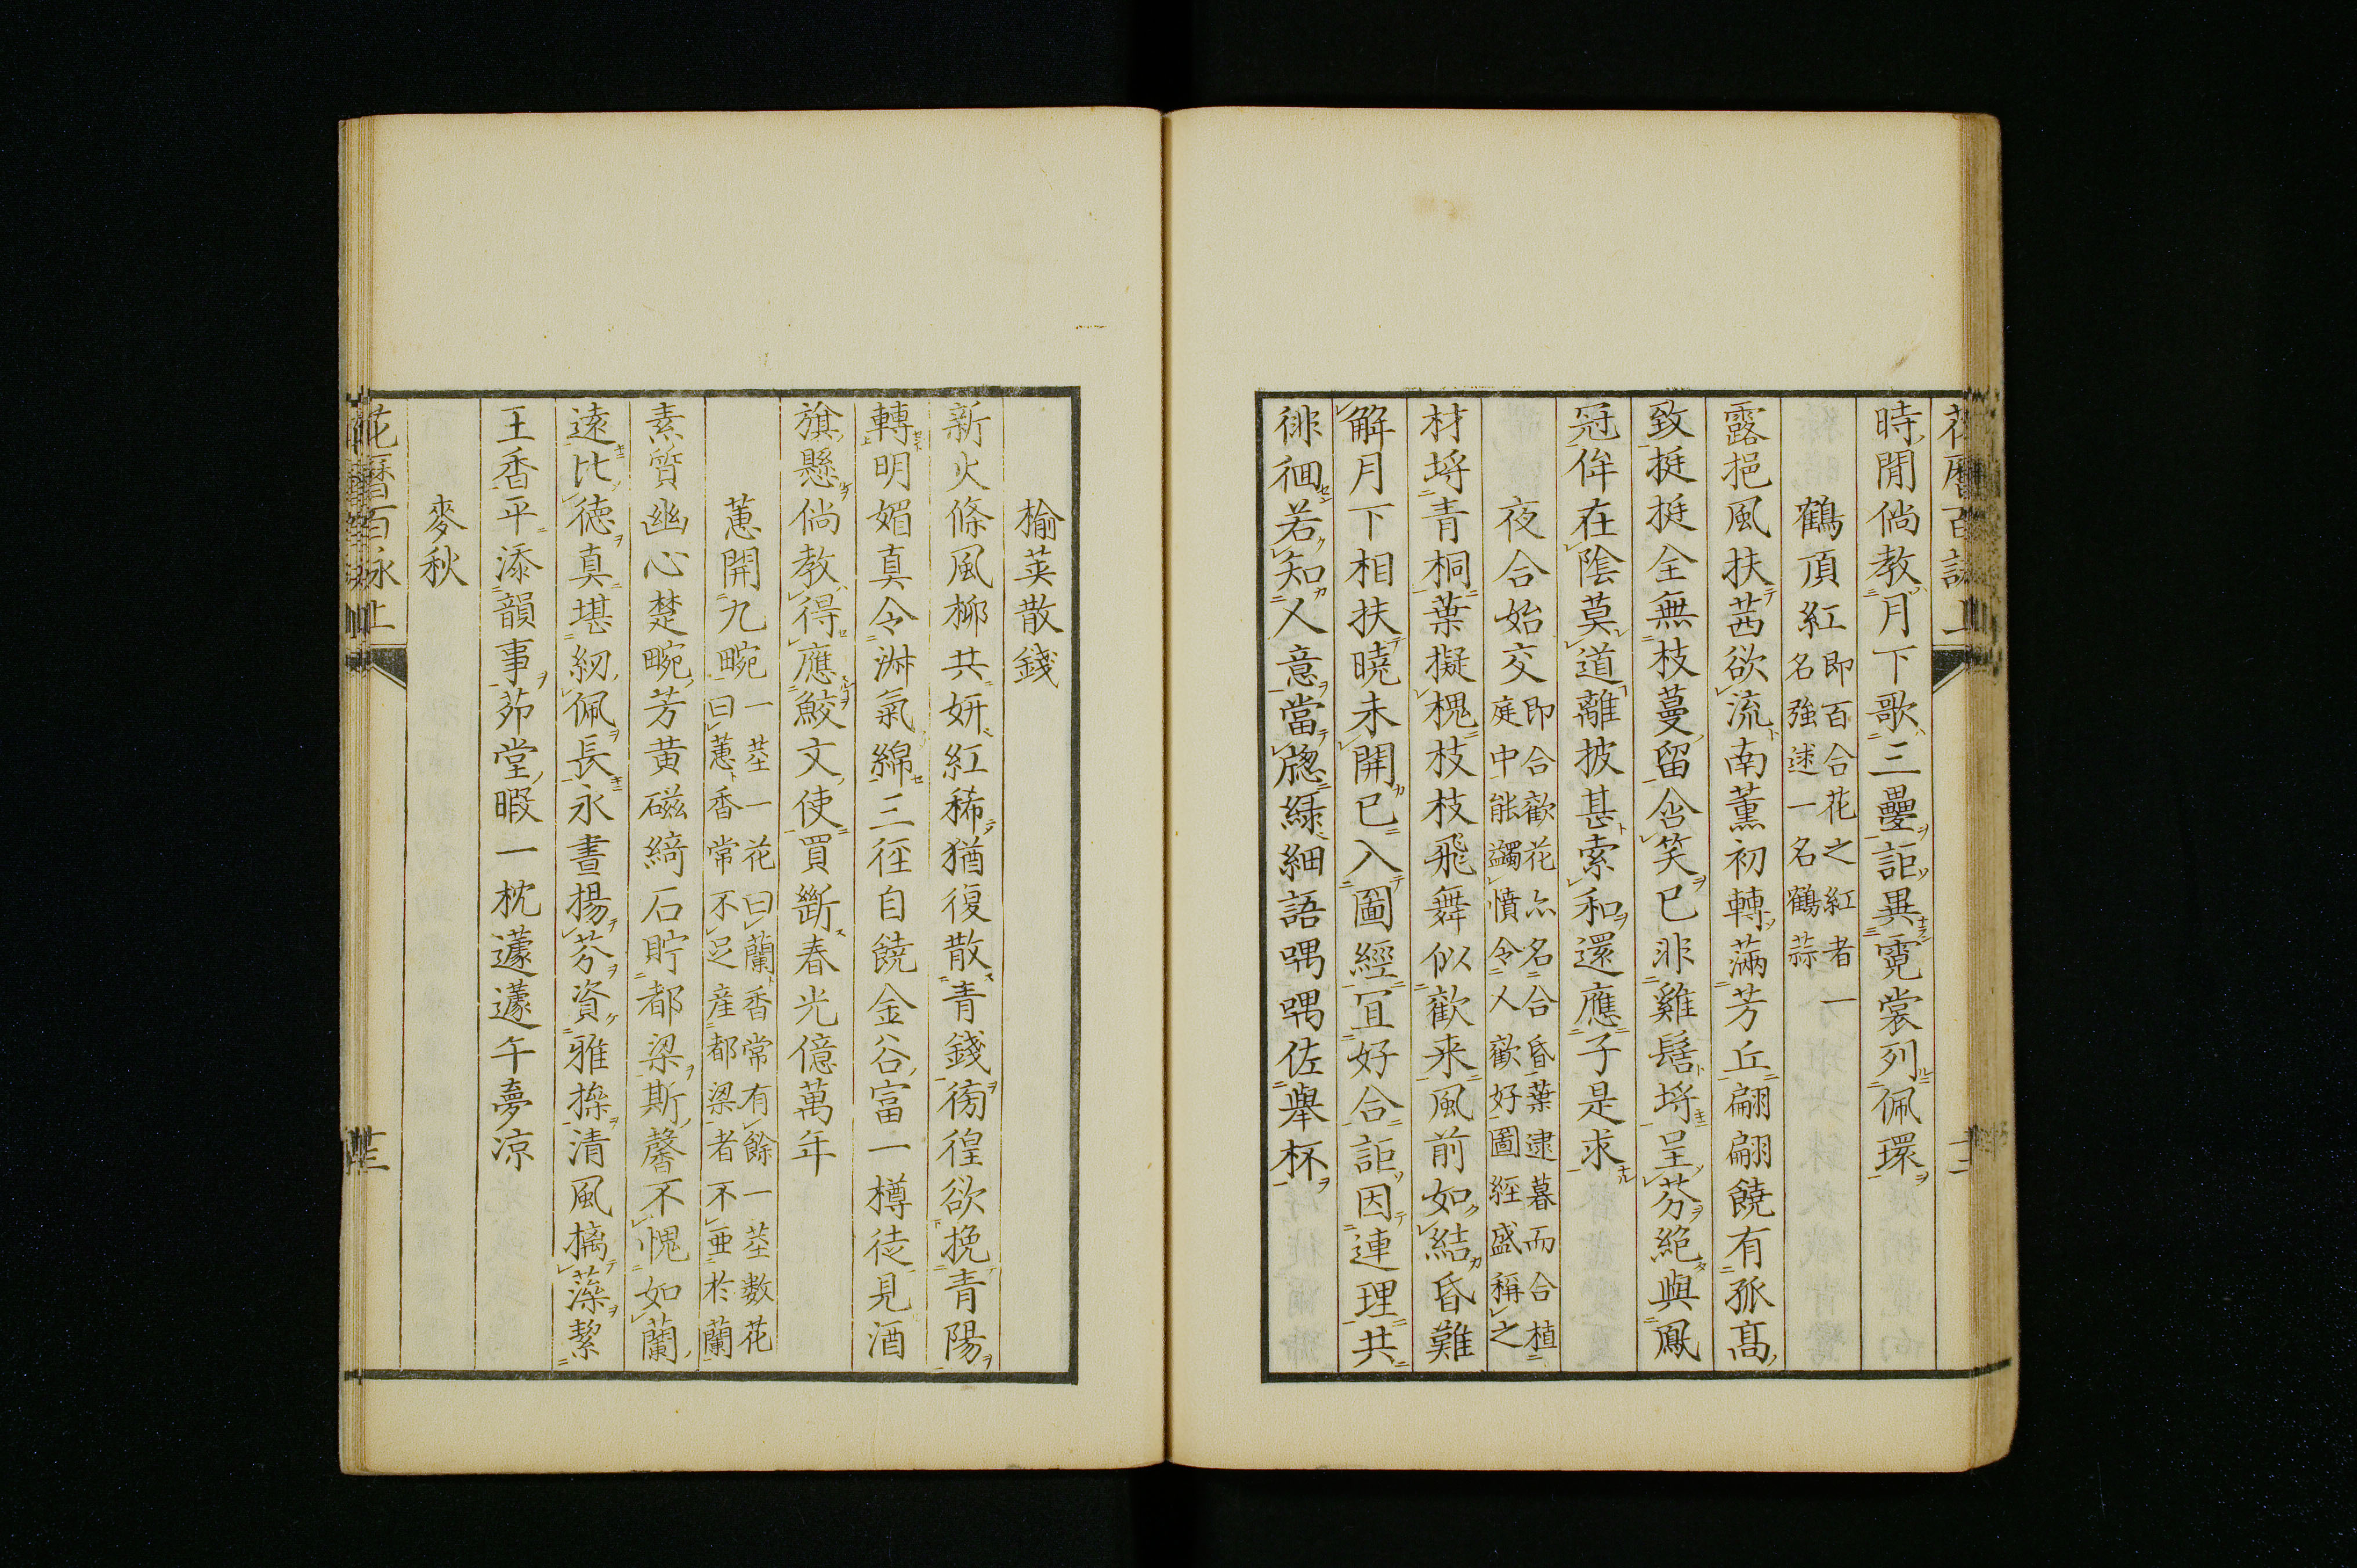 時閒倘教月下歌三疊詎異霓裳列佩環
鶴頂紅即百合花之紅者一名強逑一名鶴蒜
露挹風扶茜欲流南薰初轉滿芳丘翩翩饒有孤高
致挺挺全無枝蔓留含笑已非雞髻埒呈芬絶與鳳
冠侔在陰莫道離披甚索和還應子是求
夜合始交即合歡花亦名合昏葉逮暮而合植庭中能蠲憤令人歡好圖経盛稱之
材埒青桐葉擬槐枝枝飛舞似歡来風前如結昏難
解月下相扶曉未開已入圖經宜好合詎因連理共
徘徊若知人意當牕緑細語喁喁佐舉杯
榆莢散錢
新火條風柳共妍紅稀猶復散青錢徬徨欲挽青陽
轉明媚真令淋氣綿三徑自饒金谷富一樽徒見酒
旗懸倘教得應鮫文使買斷春光億萬年
蕙開九畹一莖一花曰蘭香常有餘一莖數花曰蕙香常不足産都梁者不亜於蘭
素質幽心楚畹芳黄磁綺石貯都梁斯馨不愧如蘭
遠比徳真堪紉佩長永晝揚芬資雅操清風摛藻絜
王香平添韻事茆堂暇一枕蘧蘧午夢凉
麥秋
花暦百詠上